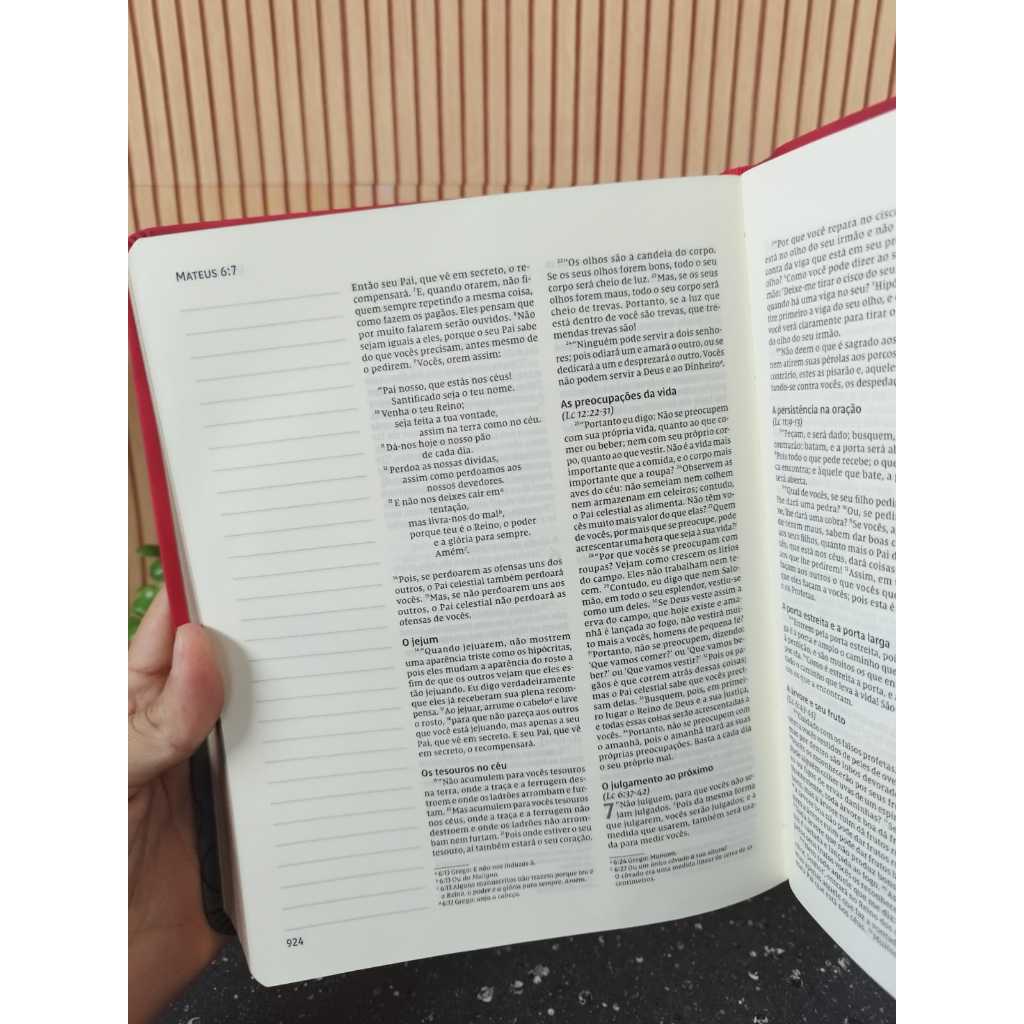 MATEUS 6:7
Então seu Pai, que vê em secreto, o re-
compensará. ⁷E, quando orarem, não fi-
quem sempre repetindo a mesma coisa,
como fazem os pagãos. Eles pensam que
por muito falarem serão ouvidos. ⁸Não
sejam iguais a eles, porque o seu Pai sabe
do que vocês precisam, antes mesmo de
o pedirem. ⁹Vocês, orem assim:
"Pai nosso, que estás nos céus!
Santificado seja o teu nome.
¹⁰Venha o teu Reino;
seja feita a tua vontade,
assim na terra como no céu.
¹¹Dá-nos hoje o nosso pão
de cada dia.
¹²Perdoa as nossas dívidas,
assim como perdoamos aos
nossos devedores.
¹³E não nos deixes cair emᵃ
tentação,
mas livra-nos do malᵇ,
porque teu é o Reino, o poder
e a glória para sempre.
Amémᶜ.
¹⁴Pois, se perdoarem as ofensas uns dos
outros, o Pai celestial também perdoará
vocês. ¹⁵Mas, se não perdoarem uns aos
outros, o Pai celestial não perdoará as
ofensas de vocês.
O jejum
¹⁶"Quando jejuarem, não mostrem
uma aparência triste como os hipócritas,
pois eles mudam a aparência do rosto a
fim de que os outros vejam que eles es-
tão jejuando. Eu digo verdadeiramente
que eles já receberam sua plena recom-
pensa. ¹⁷Ao jejuar, arrume o cabeloᵈ e lave
o rosto, ¹⁸para que não pareça aos outros
que você está jejuando, mas apenas a seu
Pai, que vê em secreto. E seu Pai, que vê
em secreto, o recompensará.
Os tesouros no céu
¹⁹"Não acumulem para vocês tesouros
na terra, onde a traça e a ferrugem des-
troem e onde os ladrões arrombam e fur-
tam. ²⁰Mas acumulem para vocês tesouros
nos céus, onde a traça e a ferrugem não
destroem e onde os ladrões não arrom-
bam nem furtam. ²¹Pois onde estiver o seu
tesouro, aí também estará o seu coração.
ᵃ 6:13 Grego: E não nos induzas à.
ᵇ 6:13 Ou do Maligno.
ᶜ 6:13 Alguns manuscritos não trazem porque teu é
o Reino, o poder e a glória para sempre. Amém.
ᵈ 6:17 Grego: unja a cabeça.
924
²²"Os olhos são a candeia do corpo.
Se os seus olhos forem bons, todo o seu
corpo será cheio de luz. ²³Mas, se os seus
olhos forem maus, todo o seu corpo será
cheio de trevas. Portanto, se a luz que
está dentro de você são trevas, que tre-
mendas trevas são!
²⁴"Ninguém pode servir a dois senho-
res; pois odiará um e amará o outro, ou se
dedicará a um e desprezará o outro. Vocês
não podem servir a Deus e ao Dinheiroᵉ.
As preocupações da vida
(Lc 12:22-31)
²⁵"Portanto eu digo: Não se preocupem
com sua própria vida, quanto ao que co-
mer ou beber; nem com seu próprio cor-
po, quanto ao que vestir. Não é a vida mais
importante que a comida, e o corpo mais
importante que a roupa? ²⁶Observem as
aves do céu: não semeiam nem colhem
nem armazenam em celeiros; contudo,
o Pai celestial as alimenta. Não têm vo-
cês muito mais valor do que elas? ²⁷Quem
de vocês, por mais que se preocupe, pode
acrescentar uma hora que seja à sua vida?ᶠ
²⁸"Por que vocês se preocupam com
roupas? Vejam como crescem os lírios
do campo. Eles não trabalham nem te-
cem. ²⁹Contudo, eu digo que nem Salo-
mão, em todo o seu esplendor, vestiu-se
como um deles. ³⁰Se Deus veste assim a
erva do campo, que hoje existe e ama-
nhã é lançada ao fogo, não vestirá mui-
to mais a vocês, homens de pequena fé?
³¹Portanto, não se preocupem, dizendo:
'Que vamos comer?' ou 'Que vamos be-
ber?' ou 'Que vamos vestir?' ³²Pois os pa-
gãos é que correm atrás dessas coisas;
mas o Pai celestial sabe que vocês preci-
sam delas. ³³Busquem, pois, em primei-
ro lugar o Reino de Deus e a sua justiça,
e todas essas coisas serão acrescentadas a
vocês. ³⁴Portanto, não se preocupem com
o amanhã, pois o amanhã trará as suas
próprias preocupações. Basta a cada dia
o seu próprio mal.
O julgamento ao próximo
(Lc 6:37-42)
7 "Não julguem, para que vocês não se-
jam julgados. ²Pois da mesma forma
que julgarem, vocês serão julgados; e a
medida que usarem, também será usa-
da para medir vocês.
ᵉ 6:24 Grego: Mamom.
ᶠ 6:27 Ou um único côvado à sua altura?
O côvado era uma medida linear de cerca de 45
centímetros.
³"Por que você repara no cisco
está no olho do seu irmão e não
conta da viga que está em seu pr
olho? ⁴Como você pode dizer ao s
mão: 'Deixe-me tirar o cisco do seu
quando há uma viga no seu? ⁵Hipó
tire primeiro a viga do seu olho, e
você verá claramente para tirar o
do olho do seu irmão.
⁶"Não deem o que é sagrado aos
nem atirem suas pérolas aos porcos
contrário, estes as pisarão e, aquele
tando-se contra vocês, os despedaça
A persistência na oração
(Lc 11:9-13)
⁷"Peçam, e será dado; busquem,
contrarão; batam, e a porta será ab
⁸Pois todo o que pede recebe; o que
ca encontra; e àquele que bate, a p
será aberta.
⁹"Qual de vocês, se seu filho pedir
lhe dará uma pedra? ¹⁰Ou, se pedi
e, lhe dará uma cobra? ¹¹Se vocês, a
de serem maus, sabem dar boas c
aos seus filhos, quanto mais o Pai d
que está nos céus, dará coisas
que lhe pedirem! ¹²Assim, em
façam aos outros o que vocês que
que eles façam a vocês; pois esta é
e os Profetas.
A porta estreita e a porta larga
¹³"Entrem pela porta estreita, poi
ga é a porta e amplo o caminho que
à perdição, e são muitos os que en
por ela. ¹⁴Como é estreita a porta, e
tado o caminho que leva à vida! São
os que a encontram.
A árvore e seu fruto
¹⁵"Cuidado com os falsos profetas.
vocês vestidos de peles de ove